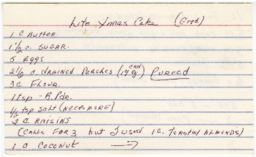 Lite Xmas Cake (Good)
1 C Butter
1 1/2 C Sugar
5 Eggs
2 1/2 C. Drained Peaches (14 oz can) Pureed
3 C Flour
1 tsp - B. Pdr.
1/2 tsp Salt (
2 C Raisins
(Calls for 3 but I used 1 C. Almonds)
1 C Coconut →